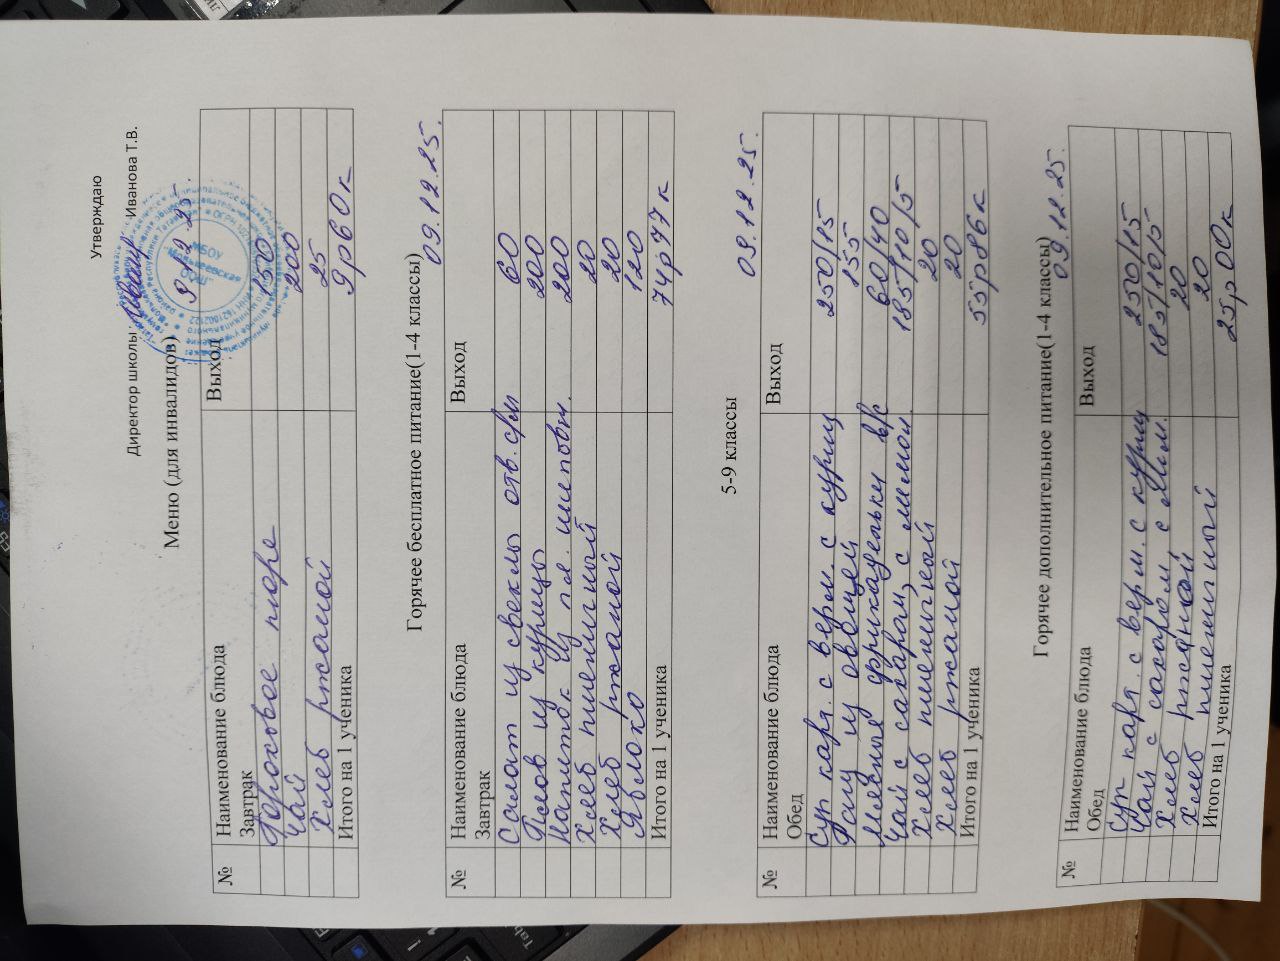 Утверждаю
Директор школы: Иванова Т.В.
Меню (для инвалидов) 9.12.25.
№ Наименование блюда Выход
Завтрак
Гороховое пюре 150
Чай 200
Хлеб ржаной 25
Итого на 1 ученика 9р60к
Горячее бесплатное питание(1-4 классы)
09.12.25.
№ Наименование блюда Выход
Завтрак
Салат из свеклы отв. с/м 60
Плов из курицы 200
Напиток из пл. шиповн. 200
Хлеб пшеничный 20
Хлеб ржаной 20
Яблоко 120
Итого на 1 ученика 74р97к
5-9 классы 09.12.25.
№ Наименование блюда Выход
Обед
Суп карт. с верм. с курицу 250/15
Рагу из овощей 155
Мясные фрикадельки в/с 60/40
Чай с сахаром, с лимон. 185/10/5
Хлеб пшеничный 20
Хлеб ржаной 20
Итого на 1 ученика 55р86к
Горячее дополнительное питание(1-4 классы)
09.12.25.
№ Наименование блюда Выход
Обед
Суп карт. с верм. с курицу 250/15
Чай с сахаром, с лим. 185/10/5
Хлеб ржаной 20
Хлеб пшеничный 20
Итого на 1 ученика 25р00к